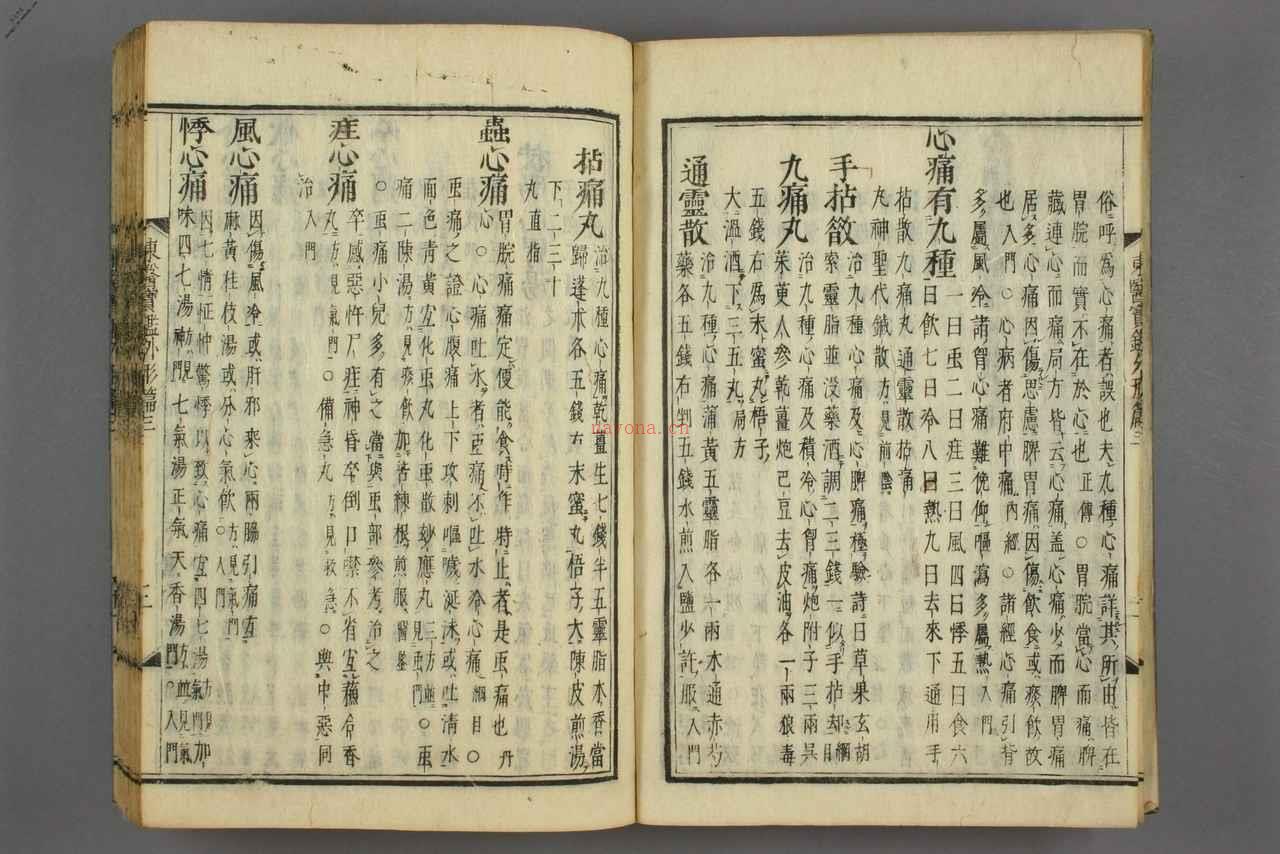 俗呼爲心痛者誤也夫九種心痛詳其所由皆在
胃脘而實不在於心也正傳○胃脘當心而痛脾
藏連心而痛局方皆云心痛盖心痛少而脾胃痛
居多心痛因傷思慮脾胃痛因傷飲食或痰飲故
也入門○心病者府中痛內經○諸經心痛引背
多屬風冷諸胃心痛難俛仰嘔瀉多屬熱入門
心痛有九種一曰䖝二曰疰三曰風四曰悸五曰食六
曰飲七曰冷八曰熱九曰去來下通用手
拈散九痛丸通靈散拈痛
丸神聖代鍼散方見前陰
手拈散治九種心痛及心脾痛極驗詩曰草果玄胡
索靈脂並没藥酒調二三錢一似手拈却綱目
九痛丸治九種心痛及積冷心胷痛炮附子三兩吳
茱萸人參乾薑炮巴豆去皮油各一兩狼毒
五錢右爲末蜜丸梧子
大溫酒下三五丸局方
通靈散治九種心痛蒲黃五靈脂各一兩木通赤芍
藥各五錢右剉五錢水煎入鹽少許服入門
東醫寶鑑外形篇三
二
拈痛丸治九種心痛乾薑生七錢半五靈脂木香當
歸蓬朮各五錢右末蜜丸梧子大陳皮煎湯
下二三十
丸直指
蟲心痛胃脘痛痛定便能食時作時止者是䖝痛也丹
心○心痛吐水者䖝痛不吐水冷心痛綱目○
䖝痛之證心腹痛上下攻刺嘔噦涎沫或吐清水
面色青黃宜化䖝丸化䖝散妙應丸三方並見䖝門○䖝
痛二陳湯方見痰飲加苦楝根煎服醫鑑
○䖝痛小兒多有之當與䖝部參考治之
疰心痛卒感惡忤尸疰神昏卒倒口噤不省宜蘇合香
丸方見氣門○備急丸方見救急○與中惡同
治入門
風心痛因傷風冷或肝邪來心兩脇引痛宜
麻黃桂枝湯或分心氣飲方見氣門○入門
悸心痛因七情怔忡驚悸以致心痛宜四七湯方見氣門加
味四七湯方見神門七氣湯正氣天香湯方並見氣門○入門
東醫寶鑑外形篇三
三
nayona.cn